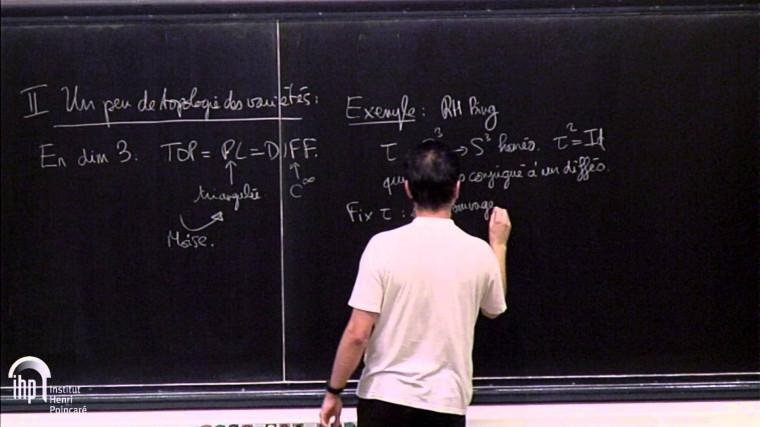 II Un peu de topologie des variétés:
En dim 3. TOP = PL = DIFF.
triangulée C^∞
Moise.
Exemple: RH Bing
τ 3 → S³ homéo. τ² = Id
conjugué à un difféo.
Fix τ :
ihp
Institut
Henri
Poincaré